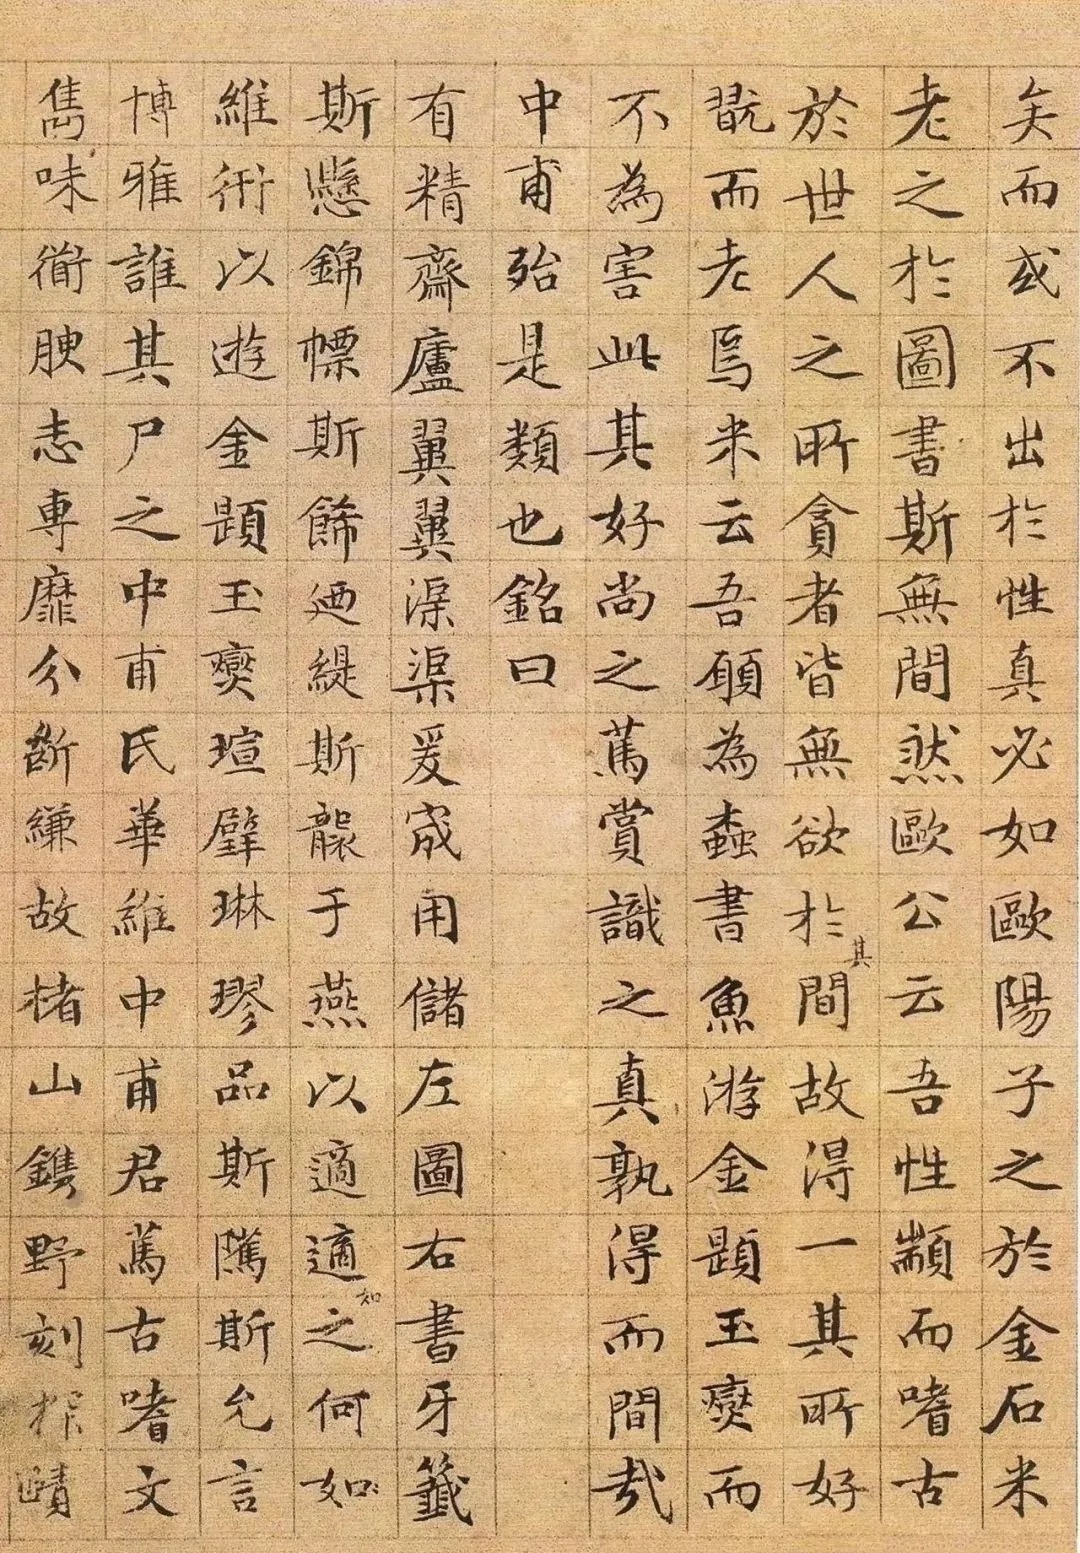 矣而或不出於性真必如歐陽子之於金石米
老之於圖書斯無間然歐公云吾性顓而嗜古
於世人之所貪者皆無欲於其間故得一其所好
翫而老焉米云吾願為蠹書魚游金題玉躞而
不為害此其好尚之篤賞識之真孰得而間哉
中甫殆是類也銘曰
有精齋廬翼翼渠渠爰宬用儲左圖右書牙籤
斯懸錦幖斯飾迺緹斯襲于燕以適適之如何如
維衎以遊金題玉躞瑄璧琳璆品斯隲斯允言
博雅誰其尸之中甫氏華維中甫君篤古嗜文
雋味衜腴志專靡分斷縑故楮山鐫野刻